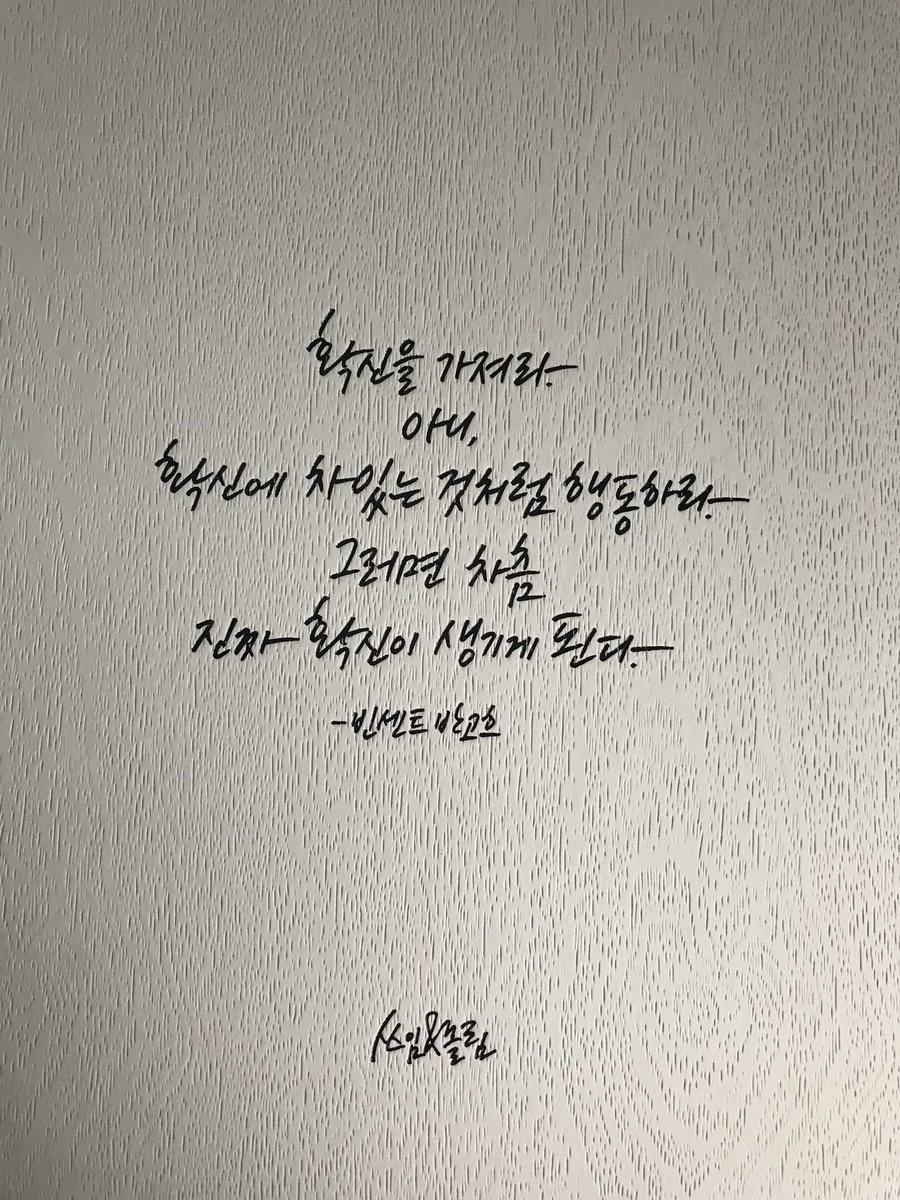 확신을 가져라.
아니,
확신에 차있는 것처럼 행동하라.
그러면 차츰
진짜 확신이 생기게 된다.
-빈센트 반고흐
쓰임&홀림